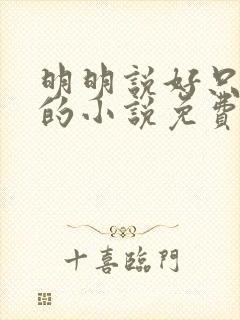 明明說好只
的小說免費
十喜臨門